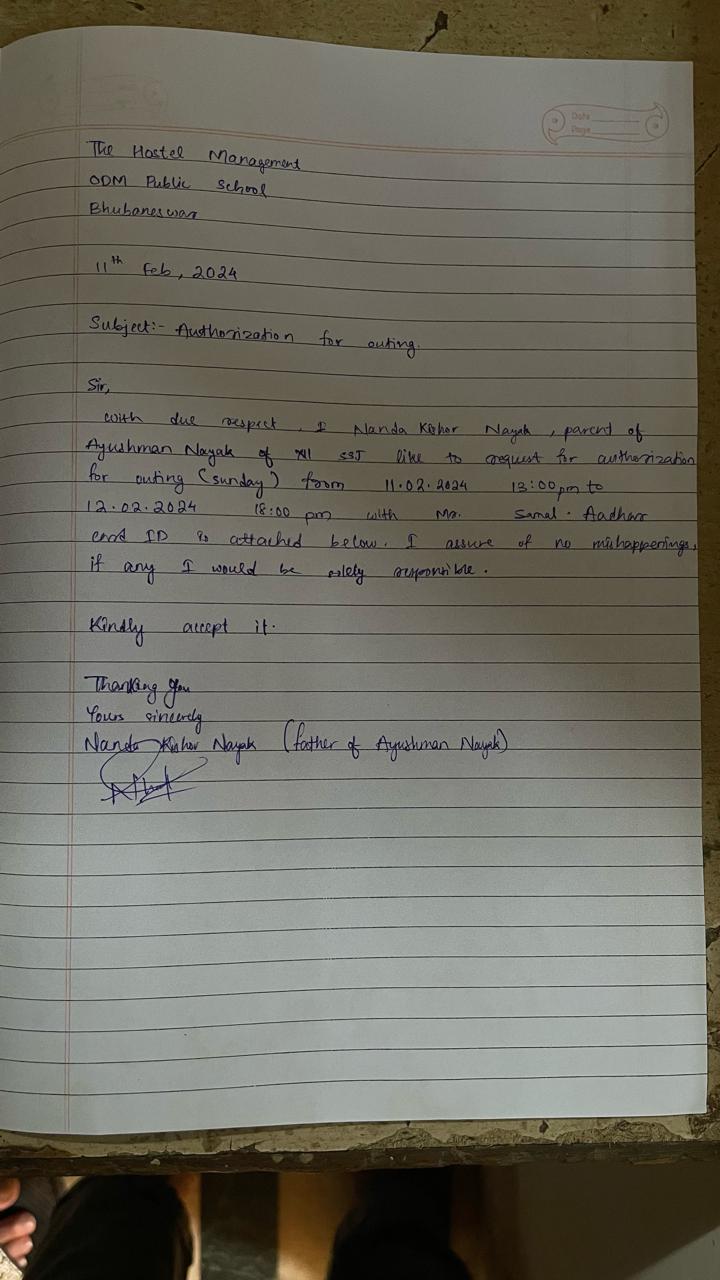 Date
Page
The Hostel Management
ODM Public School
Bhubaneswar
11th Feb, 2024
Subject:- Authorization for outing.
Sir,
With due respect, I Nanda Kishor Nayak, parent of
Ayushman Nayak of XII SSJ like to request for authorization
for outing (sunday) from 11.02.2024 13:00 pm to
12.02.2024 18:00 pm with Mr. Samal. Aadhar
card ID is attached below. I assure of no mishappenings,
if any I would be solely responsible.
Kindly accept it.
Thanking You
Yours sincerely
Nanda Kishor Nayak (father of Ayushman Nayak)